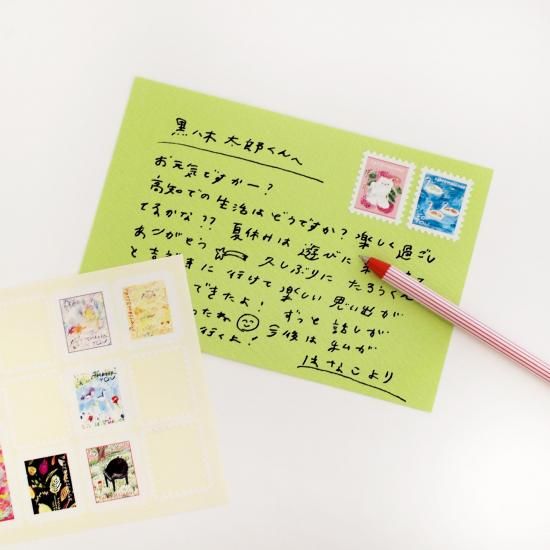 黒八木 太郎くんへ
お元気ですかー?
高知での生活はどうですか? 楽しく過ごし
てるかな?? 夏休みは 遊びに
ありがとう 久しぶりに たろうくん
と 行けて 楽しい 思い出が
できたよ! ずっと 話しが
ったね 今後は 私が
行くよ!
はなこより